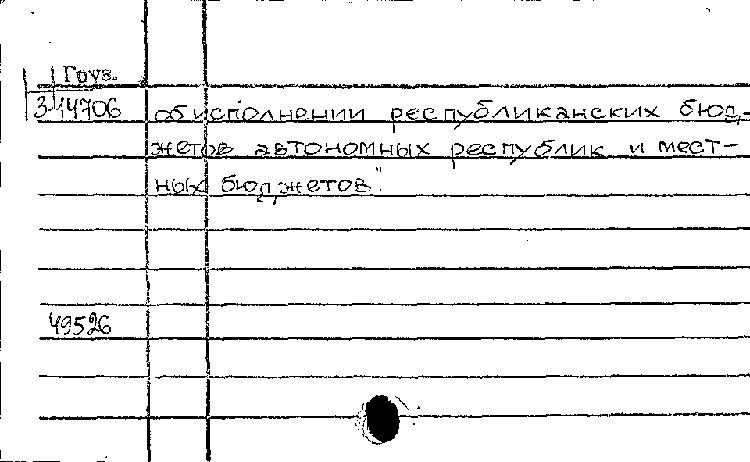 Груз.
3-14706 об исполнении республиканских бюд-
жетов автономных республик и мест-
ных бюджетов".
49526